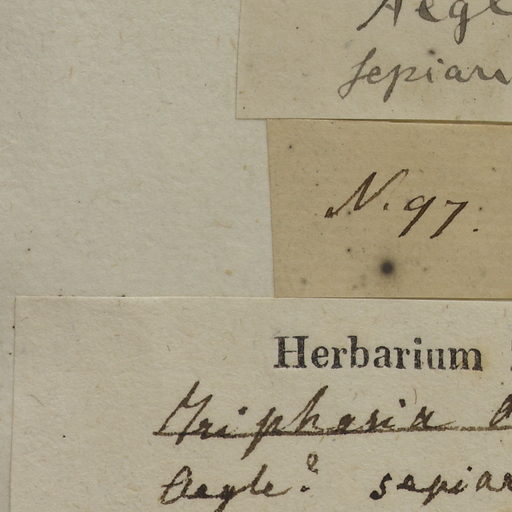 Aegle
sepiari
N. 97.
Herbarium
Triphasia
Aegle? sepiar